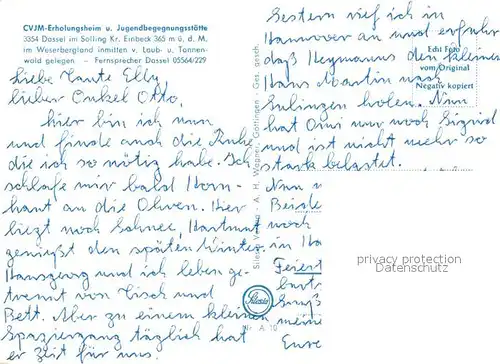 CVJM-Erholungsheim u. Jugendbegegnungsstätte
3354 Dassel im Solling Kr. Einbeck 365 m ü. d. M.
im Weserbergland inmitten v. Laub- u. Tannen-
wald gelegen – Fernsprecher Dassel 05564/229
Liebe Tante Elly,
lieber Onkel Otto,
hier bin ich nun
und finde auch die Ruhe
die ich so nötig habe. Ich
schlafe mir bald Horn-
haut an die Ohren. Hier
liegt noch Schnee, Hartmut
genießt den späten Winter.
Hansgeorg und ich leben ge-
trennt von Tisch und
Bett. Aber zu einem kleinen
Spaziergang täglich hat
er Zeit für uns.
Gestern rief ich in
Hannover an und erfuhr
daß Heymanns den kleinen
Hans Martin nach
Sulingen holen. Nun
hat Omi nur noch Sigrid
und ist nicht mehr so
stark belastet.
Nun
Beide
noch
in Ha
Feiert
Gruß
meine
Eure
Echt Foto
vom Original
Negativ kopiert
A. H. Wagner, Göttingen · Ges. gesch.
Nr. A 10
privacy protection
Datenschutz